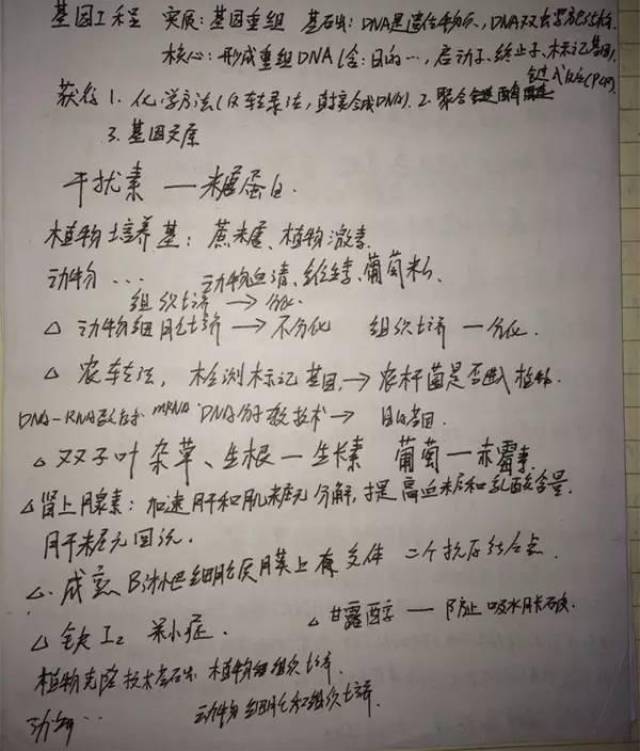 基因工程 实质：基因重组 基础：DNA是遗传物质，DNA双螺旋结构
核心：形成重组DNA(含：目的…，启动子、终止子、标记基因)
获得 1. 化学方法(反转录法，直接合成DNA). 2. 聚合酶链式反应(PCR)
3. 基因文库
干扰素 — 糖蛋白.
植物培养基：蔗糖、植物激素
动物 … 动物血清、维生素、葡萄糖、
组织培养 → 分化.
△ 动物细胞培养 → 不分化 组织培养 — 分化.
△ 农转法，检测标记基因，→ 农杆菌是否进入植物.
DNA-RNA mRNA DNA分子杂交技术 → 目的基因.
△ 双子叶杂草、生根 — 生长素 葡萄 — 赤霉素
△ 肾上腺素：加速肝和肌糖元分解，提高血糖和乳酸含量.
肝糖元回说.
△. 成熟B淋巴细胞质膜上有受体 二个抗原结合点
△ 缺I₂ 呆小症. △ 甘露醇 — 防止吸水
植物克隆技术基础 植物组织培养.
动物 … 动物细胞和组织培养.